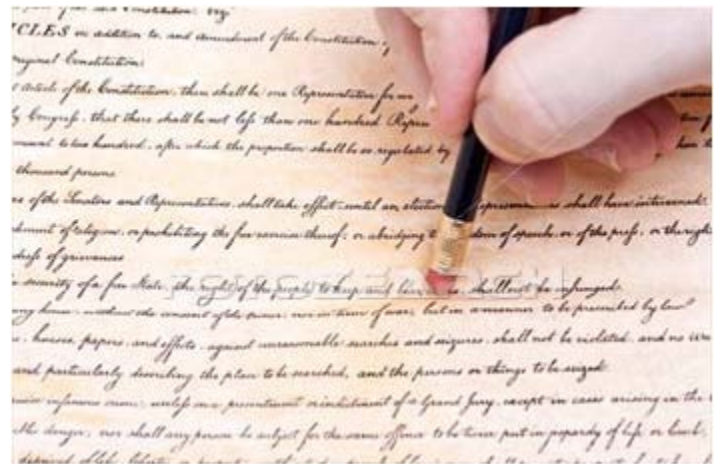 ICLES in addition to, and amendment of the Constitution
original Constitution:
t article of the Constitution, there shall be one Representative for
by Congress, that there shall be not less than one hundred Repre
amount to two hundred, after which the proportion shall be so regulated by
thousand persons
of the Senators and Representatives, shall take effect, until an election shall have intervened.
of religion, or prohibiting the free exercise thereof; or abridging dom of speech, or of the press, or the right
dress of grievances
security of a free State, the right of the people to keep and bear shall not be infringed.
any house, without the consent of the owner, nor in time of war, but in a manner to be prescribed by law
houses, papers, and effects, against unreasonable searches and seizures, shall not be violated, and no
and particularly describing the place to be searched, and the persons or things to be seized
infamous crime, unless on a presentment or indictment of a Grand Jury, except in cases arising in the
danger; nor shall any person be subject for the same offence to be twice put in jeopardy of life or limb;
deprived of life, liberty, or property